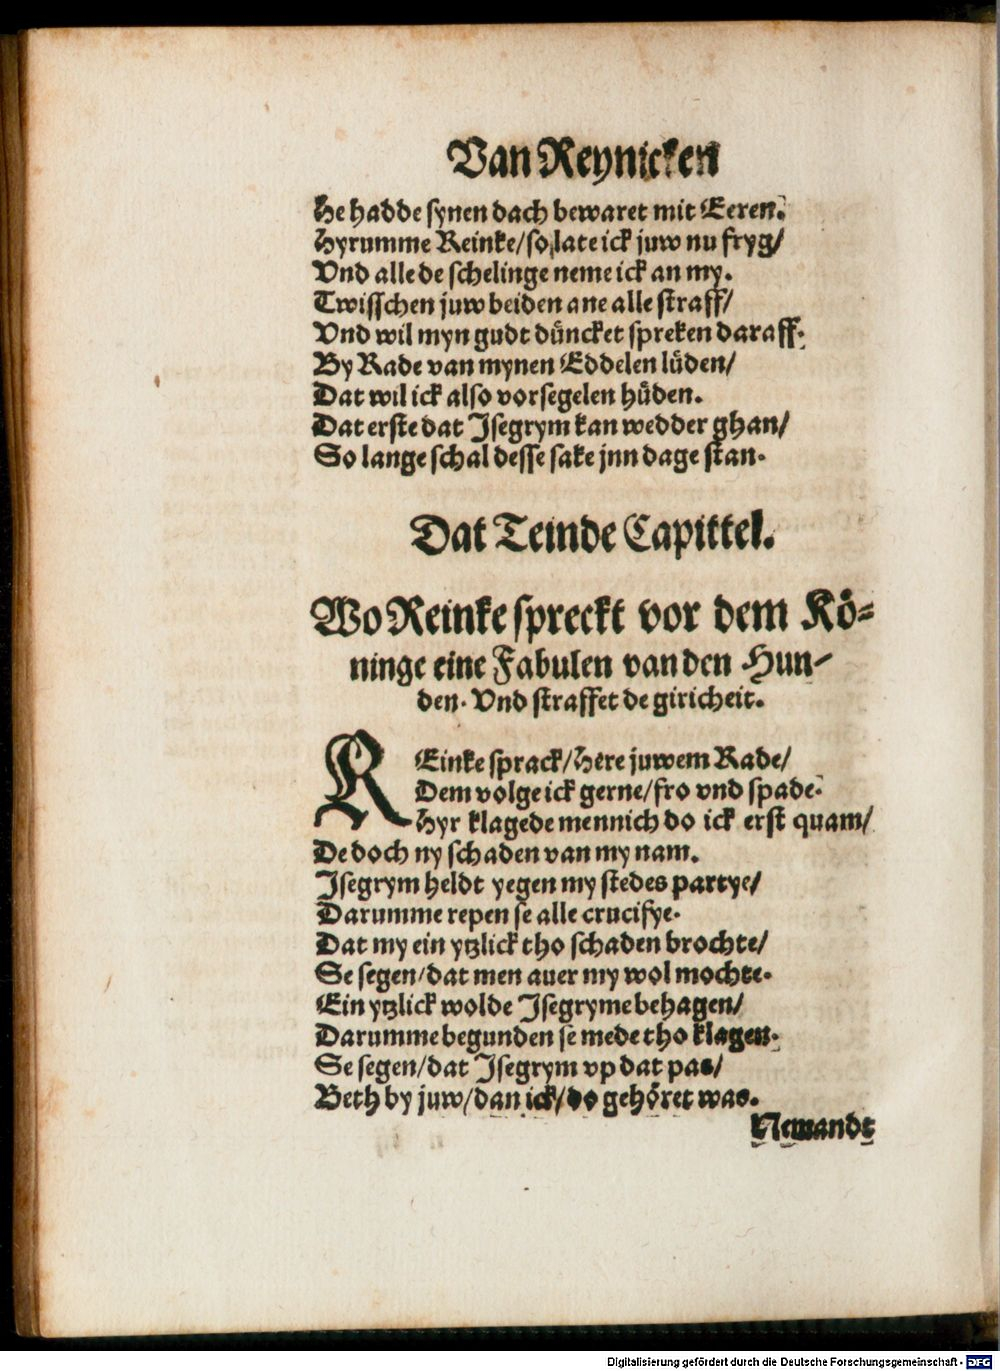 Van Reynicken
He hadde synen dach bewaret mit Eeren.
Hyrumme Reinke/so late ick juw nu fryg/
Vnd alle de schelinge neme ick an my.
Twisschen juw beiden ane alle straff/
Vnd wil myn gudt düncket spreken daraff.
By Rade van mynen Eddelen lüden/
Dat wil ick also vorsegelen hüden.
Dat erste dat Isegrym kan wedder ghan/
So lange schal desse sake jnn dage stan.
Dat Teinde Capittel.
Wo Reinke spreckt vor dem Kö-
ninge eine Fabulen van den Hun-
den. Vnd straffet de giricheit.
REinke sprack/Here juwem Rade/
Dem volge ick gerne/fro vnd spade.
Hyr klagede mennich do ick erst quam/
De doch ny schaden van my nam.
Isegrym heldt yegen my stedes partye/
Darumme repen se alle crucifye.
Dat my ein ytzlick tho schaden brochte/
Se segen/dat men auer my wol mochte.
Ein ytzlick wolde Isegryme behagen/
Darumme begunden se mede tho klagen.
Se segen/dat Isegrym vp dat pas/
Beth by juw/dan ick/do gehöret was.
Nemandt
Digitalisierung gefördert durch die Deutsche Forschungsgemeinschaft - DFG